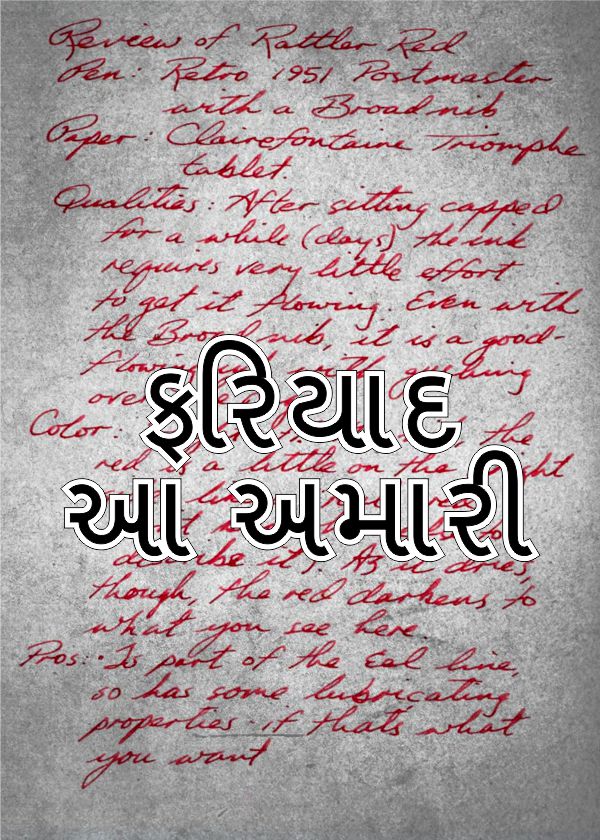 Review of Rattler Red
Pen: Retro 1951 Postmaster
with a Broad nib
Paper: Clairefontaine Triomphe
tablet.
Qualities: After sitting capped
for a while (days) the ink
requires very little effort
to get it flowing. Even with
the Broad nib, it is a good-
with gushing
ફરિયાદ
Color: the
red is a little on the
આ અમારી
describe it). As it dries,
though, the red darkens to
what you see here.
Pros: • Is part of the Eel line,
so has some lubricating
properties - if thats what
you want